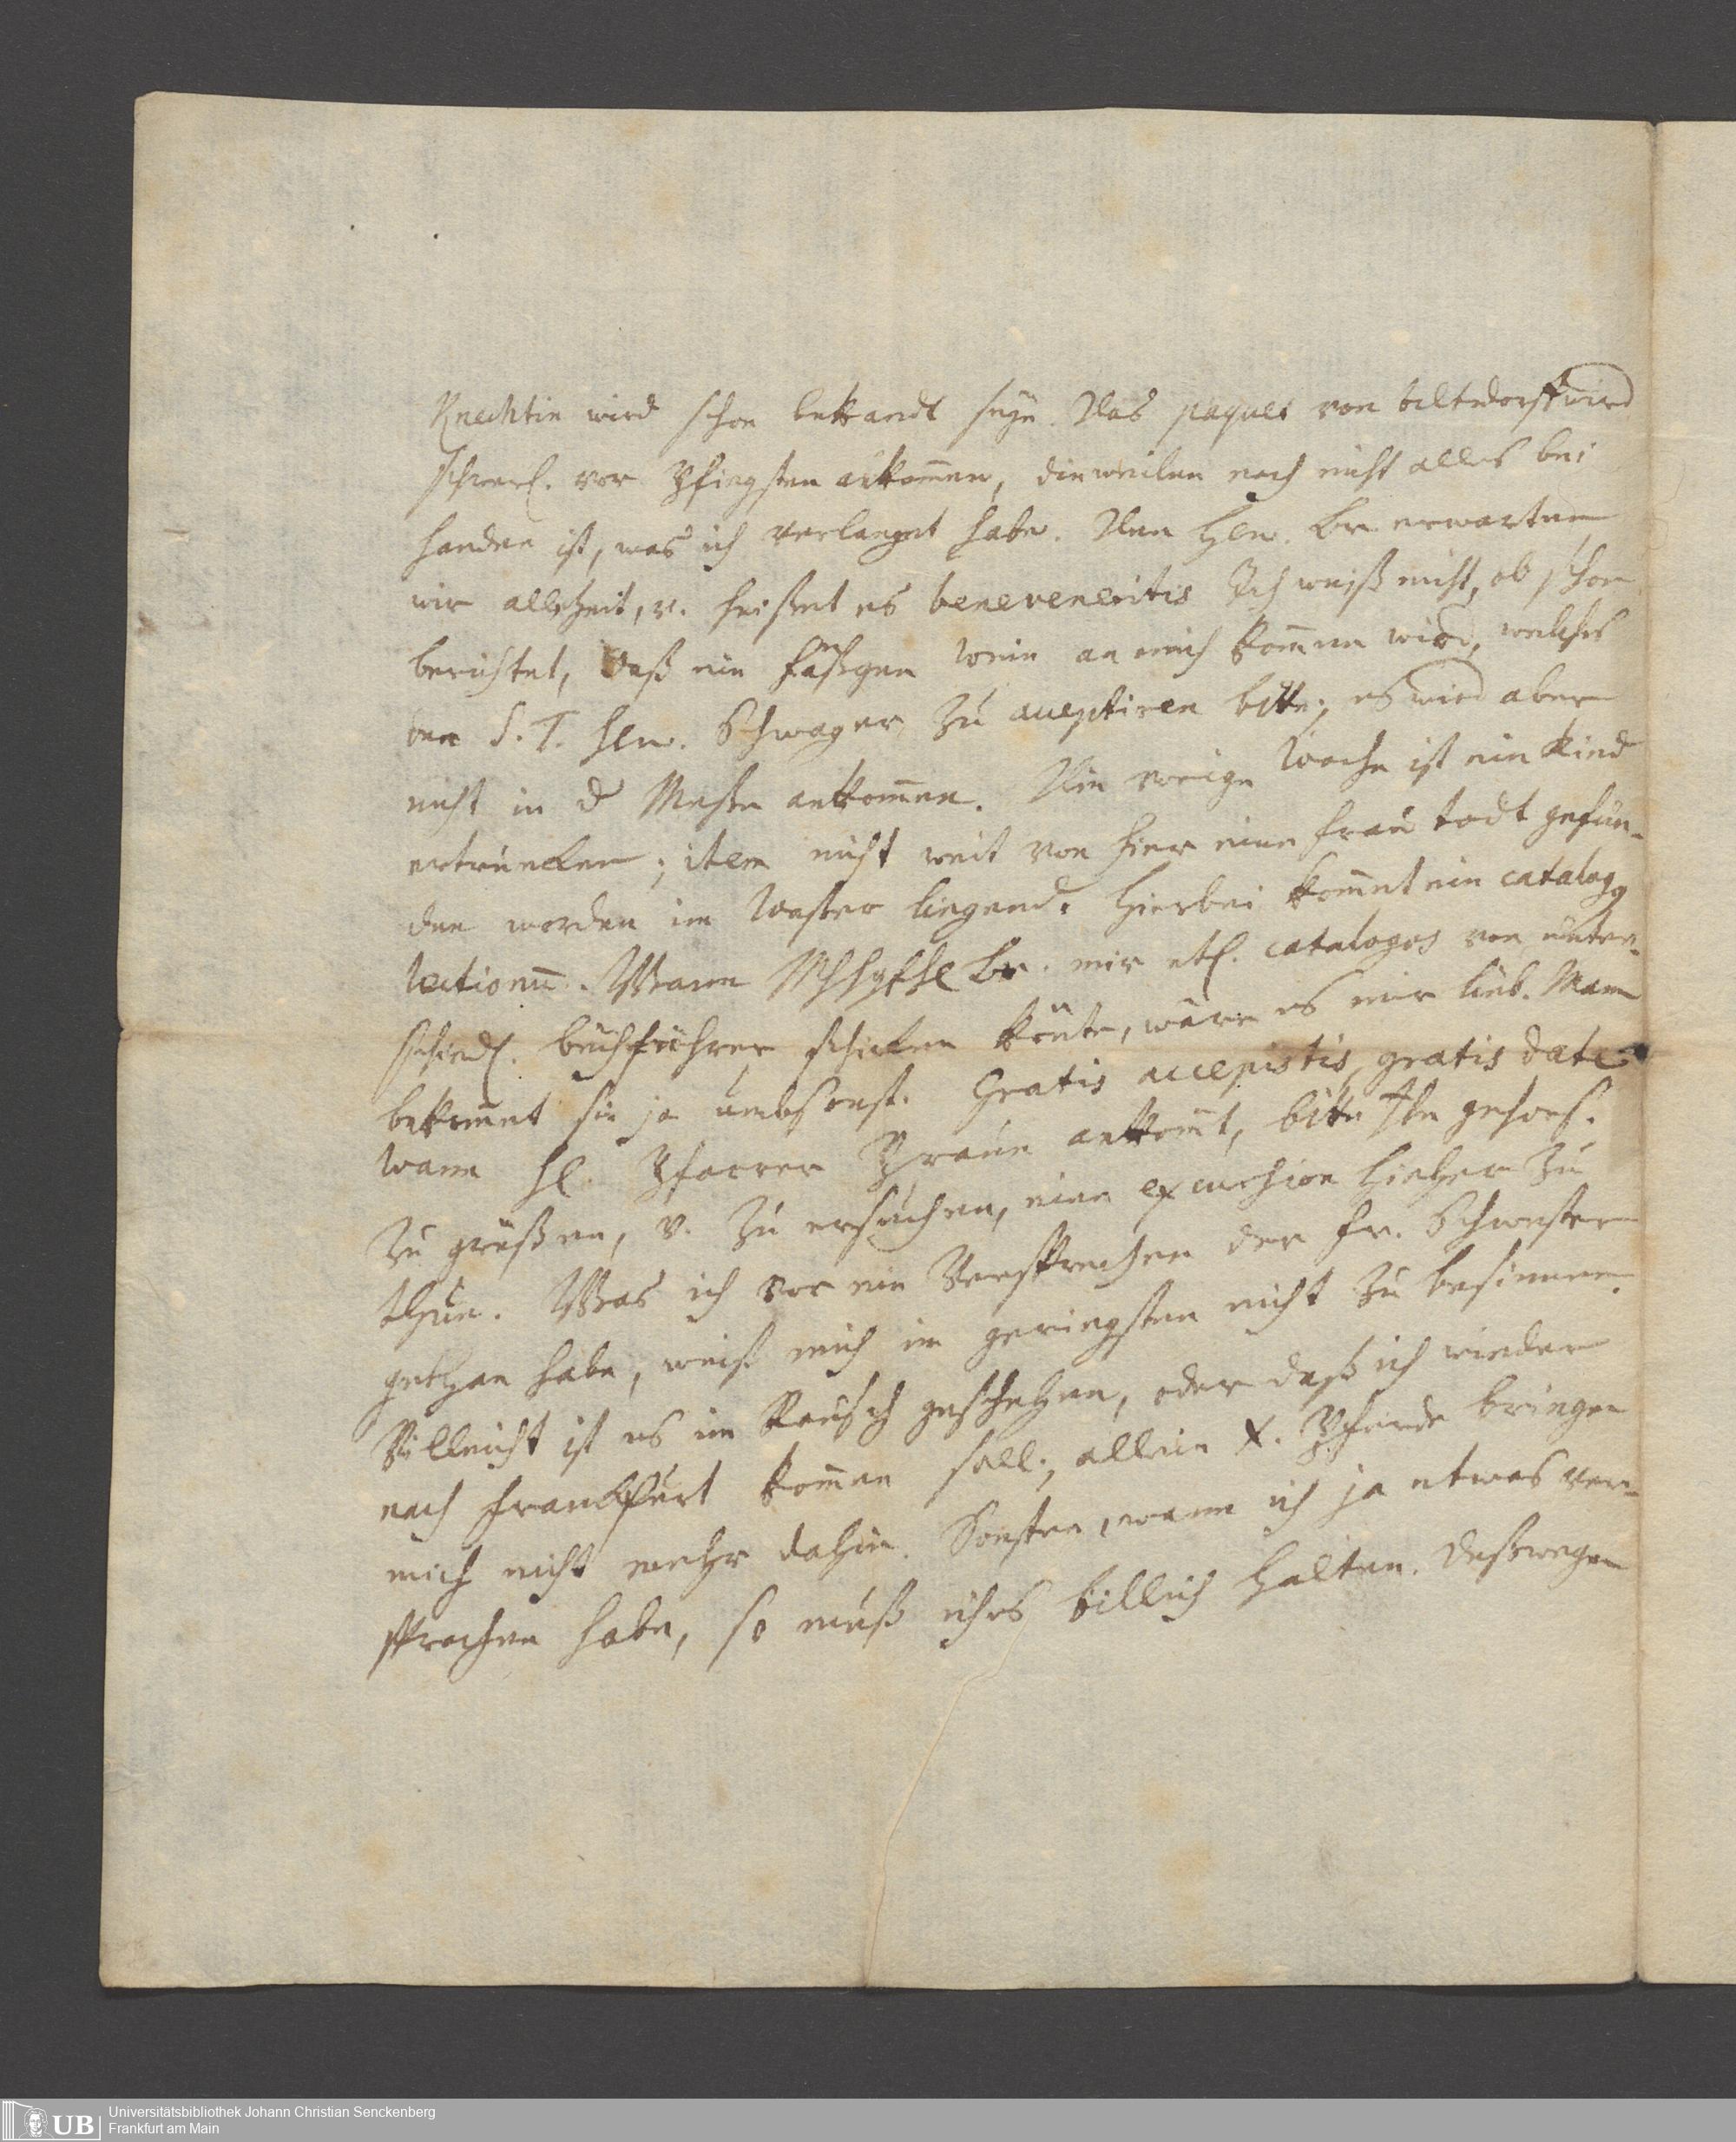 Knechtin wird schon bekandt seyn. Das paquet von wird
schwerl. vor Pfingsten ankom̄en, dieweilen noch nicht alles bei
handen ist, was ich verlanget habe. Den Hen. Br. erwarten
wir allezeit, v. heißet es beneveneritis Ich weiß nicht, ob schon
berichtet, daß ein fäßgen Wein an mich kom̄en wird, welches
den S. T. Hen. Schwager zu acceptiren bitte; es wird aber
nicht in d Messe ankom̄en. Die vorige Woche ist ein Kind
ertruncken; item nicht weit von hier eine Frau todt gefun-
den worden im Wasser liegend. Hierbei kom̄et ein catalog9
lectionū. Wann Br. mir etl. catalogos von unter-
schiedl. buchführer schicken kön̄te, wäre es mir lieb. Mann
bekom̄et sie ja umbsonst. Gratis accepistis, gratis date
Wann Hl. Pfarrer Braun ankom̄t, bitte Ihn gehors.
zu grüßen, v. zu ersuchen, eine excursion hieher zu
thun. Was ich vor ein Versprechen der Fr. Schwester
gethan habe, weiß mich im geringsten nicht zu besinnen.
Villeicht ist es im Rausch geschehen, oder daß ich wieder
nach Franckfurt kom̄en soll; allein X. Pferde bringen
mich nicht mehr dahin. Sonsten, wann ich ja etwas ver-
sprochen habe, so muß ichs billich halten. Deßwegen
Universitätsbibliothek Johann Christian Senckenberg
Frankfurt am Main
UB